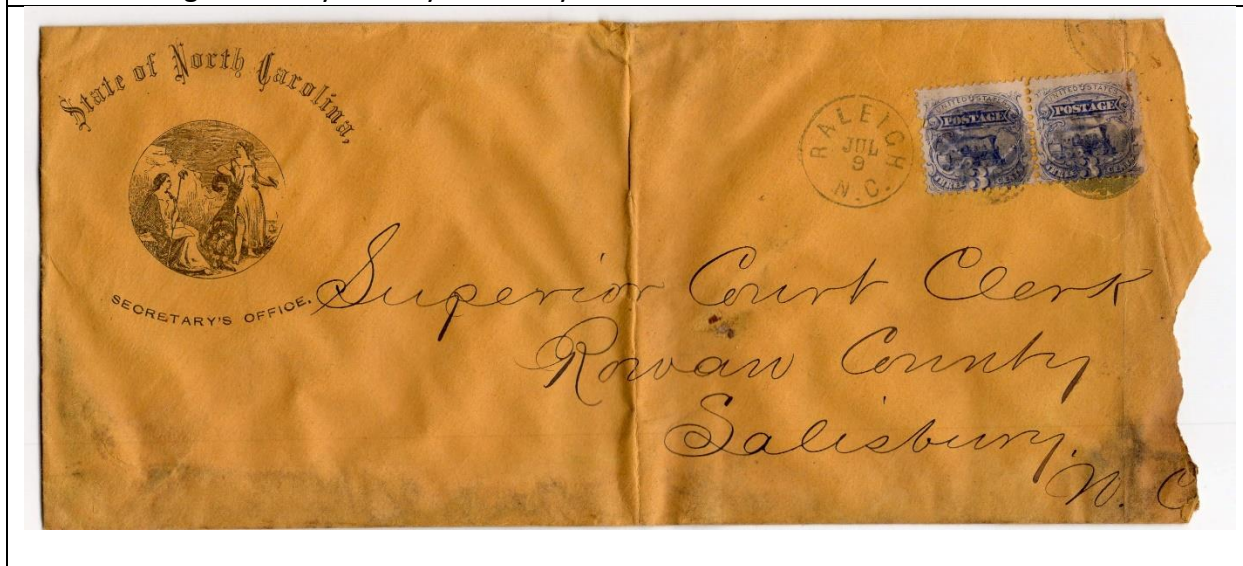 State of North Carolina,
SECRETARY'S OFFICE.
RALEIGH
JUL
9
N.C.
UNITED STATES
POSTAGE
THREE 3 CENTS
UNITED STATES
POSTAGE
3 CENTS
Superior Court Clerk
Rowan County
Salisbury,
N. C